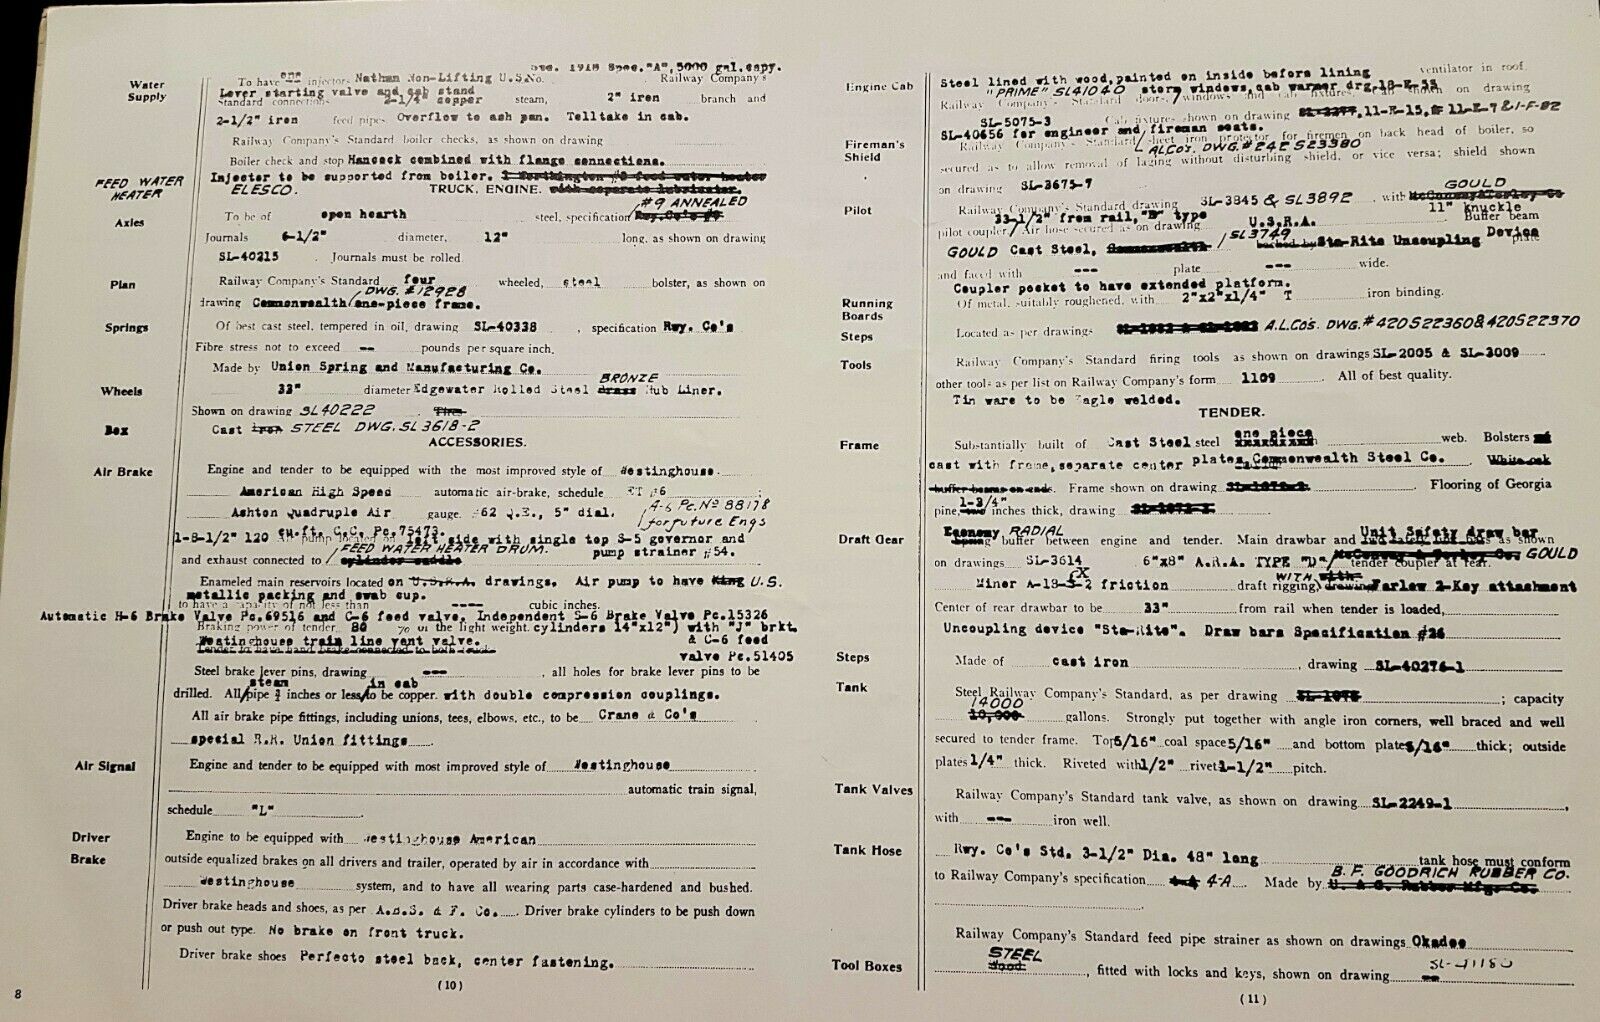 1918 Spec."A",5000 gal.capy.
Water Supply
To have one injectors Nathan Non-Lifting U.S.No. Railway Company's
Lever starting valve and cab stand
Standard connections 2-1/4" copper steam, 2" iron branch and
2-1/2" iron feed pipes. Overflow to ash pan. Telltake in cab.
Railway Company's Standard boiler checks, as shown on drawing
Boiler check and stop Hancock combined with flange connections.
FEED WATER HEATER
Injector to be supported from boiler. 1 Worthington #2 feed water heater
ELESCO. TRUCK, ENGINE. with separate lubricator.
#9 ANNEALED
Axles
To be of open hearth steel, specification Rwy.Co's #9
Journals 6-1/2" diameter, 12" long, as shown on drawing
SL-40215 . Journals must be rolled.
Plan
Railway Company's Standard four wheeled, steel bolster, as shown on
DWG. #12928
drawing Commonwealth/one-piece frame.
Springs
Of best cast steel, tempered in oil, drawing SL-40338 , specification Rwy. Co's
Fibre stress not to exceed -- pounds per square inch.
Made by Union Spring and Manufacturing Co.
BRONZE
Wheels
33" diameter Edgewater Rolled Steel Brass Hub Liner.
Shown on drawing SL40222 . Tires
Box
Cast iron STEEL DWG. SL3618-2
ACCESSORIES.
Air Brake
Engine and tender to be equipped with the most improved style of Westinghouse
American High Speed automatic air-brake, schedule ET #6 ;
A-6 Pc. No 88178
Ashton Quadruple Air gauge. #62 Q.E., 5" dial. for future Engs
1-8-1/2" 120 cu.ft. C.C. Pc.75473. Air pump located on left side with single top S-5 governor and
FEED WATER HEATER DRUM.
and exhaust connected to / cylinder saddle pump strainer #54.
Enameled main reservoirs located on U.S.R.A. drawings. Air pump to have King U.S.
metallic packing and swab cup.
to have a capacity of not less than ---- cubic inches.
Automatic H-6 Brake Valve Pc.69516 and C-6 feed valve, Independent S-6 Brake Valve Pc.15326
Braking power of tender 80 % of the light weight. cylinders 14"x12") with "J" brkt.
Westinghouse train line vent valve. & C-6 feed
Tender to have hand brake connected to both trucks
valve Pc.51405
Steel brake lever pins, drawing --- , all holes for brake lever pins to be
steam in cab
drilled. All/pipe inches or less/to be copper. with double compression couplings.
All air brake pipe fittings, including unions, tees, elbows, etc., to be Crane & Co's
special R.R. Union fittings .
Air Signal
Engine and tender to be equipped with most improved style of Westinghouse
automatic train signal,
schedule "L" .
Driver Brake
Engine to be equipped with Westinghouse American
outside equalized brakes on all drivers and trailer, operated by air in accordance with
Westinghouse system, and to have all wearing parts case-hardened and bushed.
Driver brake heads and shoes, as per A.B.S. & F. Co. . Driver brake cylinders to be push down
or push out type. No brake on front truck.
Driver brake shoes Perfecto steel back, center fastening.
(10)
8
Engine Cab
Steel lined with wood,painted on inside before lining ventilator in roof.
"PRIME" SL41040 storm windows,cab warmer drg.18-E-33
Railway Company's Standard doors, windows and cab fixtures, shown on drawing
SL-5075-3 Cab fixtures shown on drawing 11-E-15, & 11-E-7 & 1-F-82
SL-40656 for engineer and fireman seats.
Fireman's Shield
Railway Company's Standard sheet iron protector for firemen on back head of boiler, so
ALCO'S. DWG. #242 S23380
secured as to allow removal of laging without disturbing shield, or vice versa; shield shown
on drawing SL-3675-7
GOULD
Pilot
Railway Company's Standard drawing SL-3845 & SL3892 , with McConway&Torley Co
33-1/2" from rail,"D" type 11" knuckle
pilot coupler/ Air hose secured as on drawing U.S.R.A. Buffer beam
SL3749
GOULD Cast Steel, Commonwealth / backed by Sta-Rite Uncoupling Device plate
and faced with --- plate --- wide.
Coupler pocket to have extended platform.
Running Boards
Of metal, suitably roughened, with 2"x2"x1/4" T iron binding.
Steps
Located as per drawings A.L.CO'S. DWG. #420S22360&420S22370
Tools
Railway Company's Standard firing tools as shown on drawings SL-2005 & SL-3009
other tools as per list on Railway Company's form 1109 All of best quality.
Tin ware to be Eagle welded.
TENDER.
one piece
Frame
Substantially built of Cast Steel steel web. Bolsters
cast with frame,separate center plates Commonwealth Steel Co. White oak
buffer beams on ends. Frame shown on drawing Flooring of Georgia
1-3/4"
pine, two inches thick, drawing
Economy RADIAL Unit Safety draw bar
Draft Gear
Spring buffer between engine and tender. Main drawbar and two safety bars as shown
McConway & Torley Co. GOULD
on drawings SL-3614 6"x8" A.R.A. TYPE "D"/ tender coupler at rear.
Miner A-18-S-2 friction draft rigging, WITH Farlow 2-Key attachment
Center of rear drawbar to be 33" from rail when tender is loaded,
Uncoupling device "Sta-Rite". Draw bars Specification #26
Steps
Made of cast iron , drawing SL-40276-1
Tank
Steel Railway Company's Standard, as per drawing SL-1078 ; capacity
14000
10,000 gallons. Strongly put together with angle iron corners, well braced and well
secured to tender frame. Top 5/16" coal space 5/16" and bottom plates 5/16" thick; outside
plates 1/4" thick. Riveted with 1/2" rivet 1-1/2" pitch.
Tank Valves
Railway Company's Standard tank valve, as shown on drawing SL-2249-1 ,
with --- iron well.
Tank Hose
Rwy. Co's Std. 3-1/2" Dia. 48" long tank hose must conform
B.F. GOODRICH RUBBER CO.
to Railway Company's specification 4-A. Made by
Railway Company's Standard feed pipe strainer as shown on drawings Okadee
STEEL
Tool Boxes
Wood , fitted with locks and keys, shown on drawing SL-41180
(11)